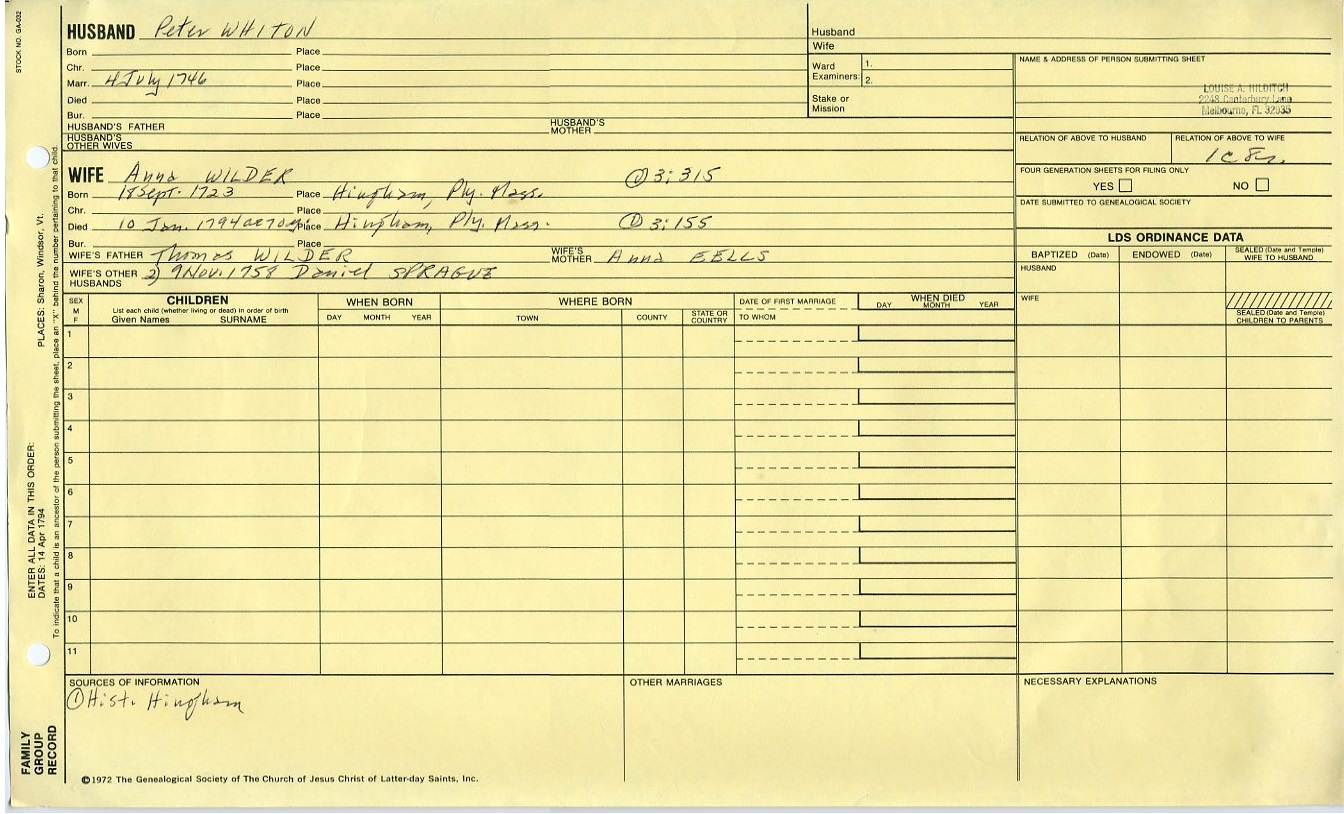 STOCK NO. GA-032
HUSBAND Peter WHITON
Born Place
Chr. Place
Marr. 4 July 1746 Place
Died Place
Bur. Place
HUSBAND'S FATHER HUSBAND'S MOTHER
HUSBAND'S OTHER WIVES
Husband
Wife
Ward Examiners: 1.
2.
Stake or Mission
NAME & ADDRESS OF PERSON SUBMITTING SHEET
LOUISE A. HILDITCH
2248 Canterbury Lane
Melbourne, FL 32935
RELATION OF ABOVE TO HUSBAND RELATION OF ABOVE TO WIFE
FOUR GENERATION SHEETS FOR FILING ONLY
YES NO
DATE SUBMITTED TO GENEALOGICAL SOCIETY
WIFE Anna WILDER ① 3:315
Born 18 Sept. 1723 Place Hingham, Ply. Mass.
Chr. Place
Died 10 Jan. 1794 ae 70 Place Hingham, Ply. Mass. ① 3:155
Bur. Place
WIFE'S FATHER Thomas WILDER WIFE'S MOTHER Anna EELLS
WIFE'S OTHER HUSBANDS 2) 9 Nov. 1758 Daniel SPRAGUE
LDS ORDINANCE DATA
BAPTIZED (Date) ENDOWED (Date) SEALED (Date and Temple) WIFE TO HUSBAND
HUSBAND
WIFE
SEALED (Date and Temple) CHILDREN TO PARENTS
SEX M F
CHILDREN
List each child (whether living or dead) in order of birth
Given Names SURNAME
WHEN BORN
DAY MONTH YEAR
WHERE BORN
TOWN COUNTY STATE OR COUNTRY
DATE OF FIRST MARRIAGE
TO WHOM
WHEN DIED
DAY MONTH YEAR
1
2
3
4
5
6
7
8
9
10
11
SOURCES OF INFORMATION
① Hist. Hingham
OTHER MARRIAGES
NECESSARY EXPLANATIONS
©1972 The Genealogical Society of The Church of Jesus Christ of Latter-day Saints, Inc.
FAMILY GROUP RECORD
ENTER ALL DATA IN THIS ORDER:
DATES: 14 Apr 1794
PLACES: Sharon, Windsor, Vt.
To indicate that a child is an ancestor of the person submitting the sheet, place an "X" behind the number pertaining to that child.